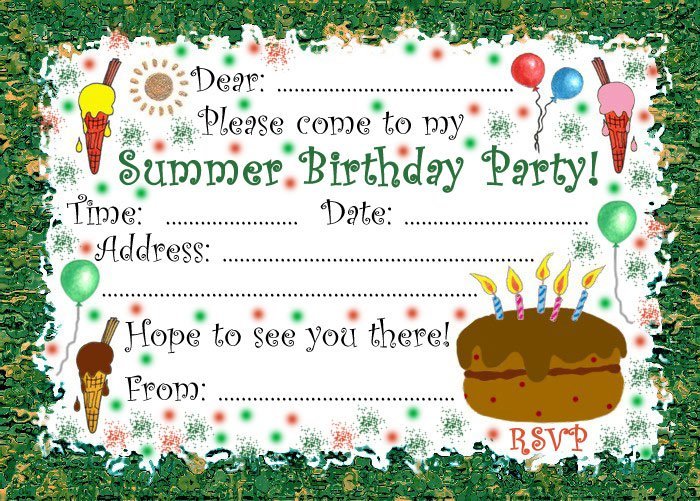 Dear: ....................................................
Please come to my
Summer Birthday Party!
Time: ............................. Date: .........................................
Address: .....................................................................
...................................................................................
Hope to see you there!
From: ....................................................
RSVP